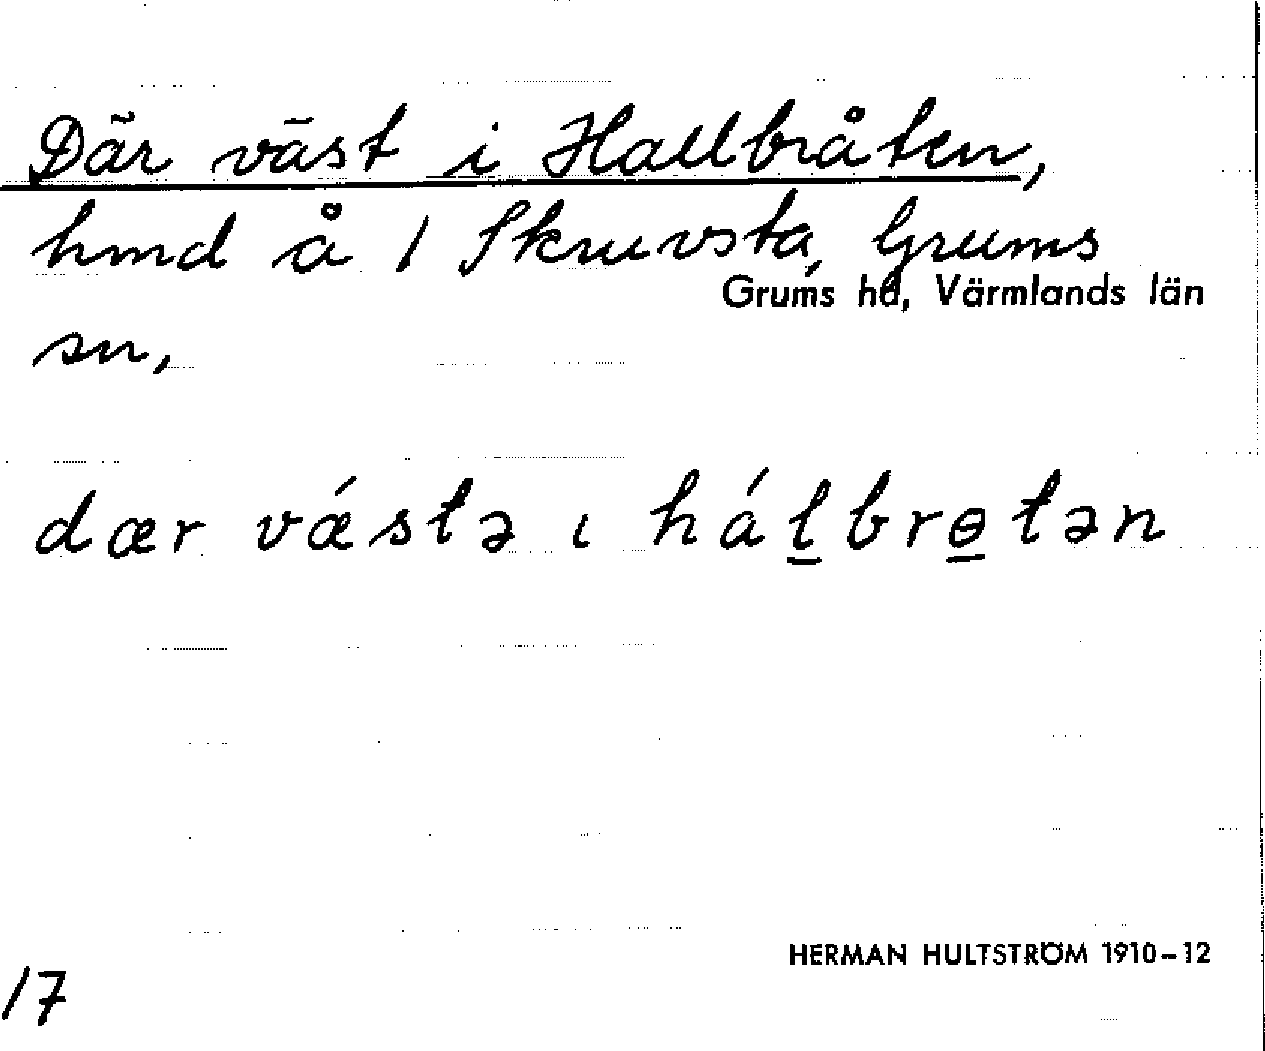 Där väst i Hallbråten,
hmd å 1 Skruvsta, Grums
Grums hd, Värmlands län
sn,
dær vǽstə ɩ hál̲brɵ̲tən
HERMAN HULTSTRÖM 1910–12
17